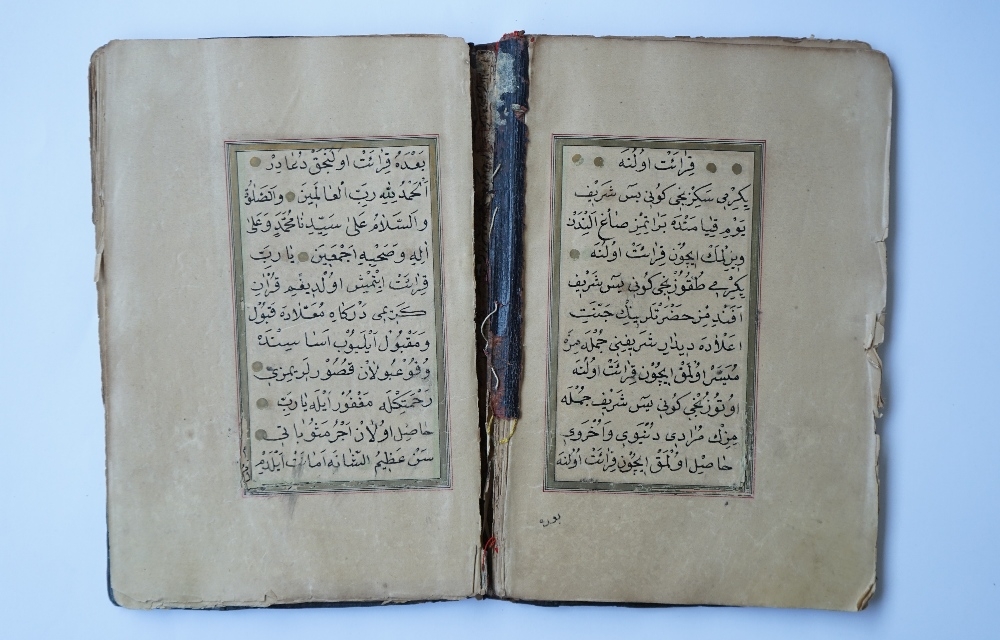 قرائت اولنه
يكرمى سكزنجى كونى يس شريف
يوم قيامتده براتمز صاغ المزدن
ويرلمك ايچون قرائت اولنه
يكرمى طقوزنجى كونى يس شريف
افندمز حضرتلرينك جنت
اعلاده ديدار شريفنى جمله مزه
ميسر اولمق ايچون قرائت اولنه
اوتوزنجى كونى يس شريف جمله
مزك مرادى دنيوى واخروى
حاصل اولمق ايچون قرائت اولنه
بعده
بعده قرائت اولنجق دعادر
الحمد لله رب العالمين والصلوة
والسلام على سيدنا محمد وعلى
اله وصحبه اجمعين يا رب
قرائت ايتمش اولديغم قران
كريمى دركاه معلاده قبول
ومقبول ايليوب اسناسنده
وقوعبولان قصورلريمزى
رحمتكله مغفور ايله يا رب
حاصل اولان اجر مثوباتى
سن عظيم الشانه امانت ايلدم